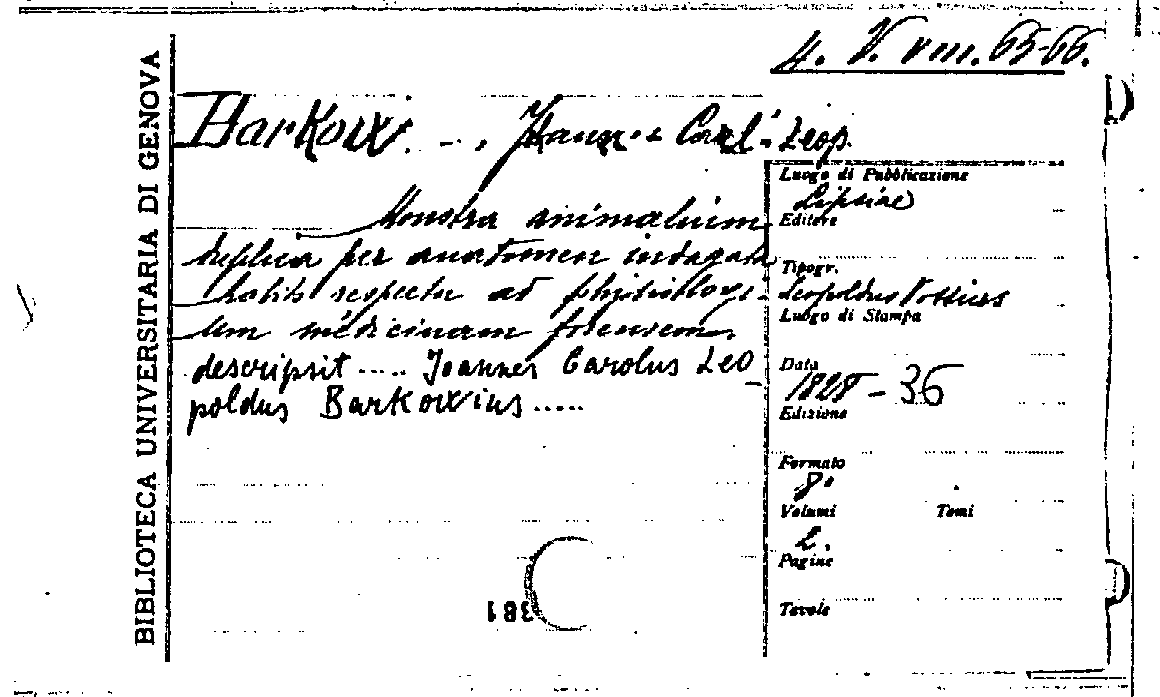 4. V. VIII. 65-66.
BIBLIOTECA UNIVERSITARIA DI GENOVA
Barkow Carl Leop.
Monstra animalium
duplicia per anatomen indagata
habito respectu ad physiologi-
am medicinam forensem
descripsit ..... Joannes Carolus Leo
poldus Barkowius .....
Luogo di Pubblicazione
Lipsiae
Editore
Tipogr.
Leopoldus Vossius
Luogo di Stampa
Data
1828-36
Edizione
Formato
8°
Volumi Tomi
2.
Pagine
Tavole